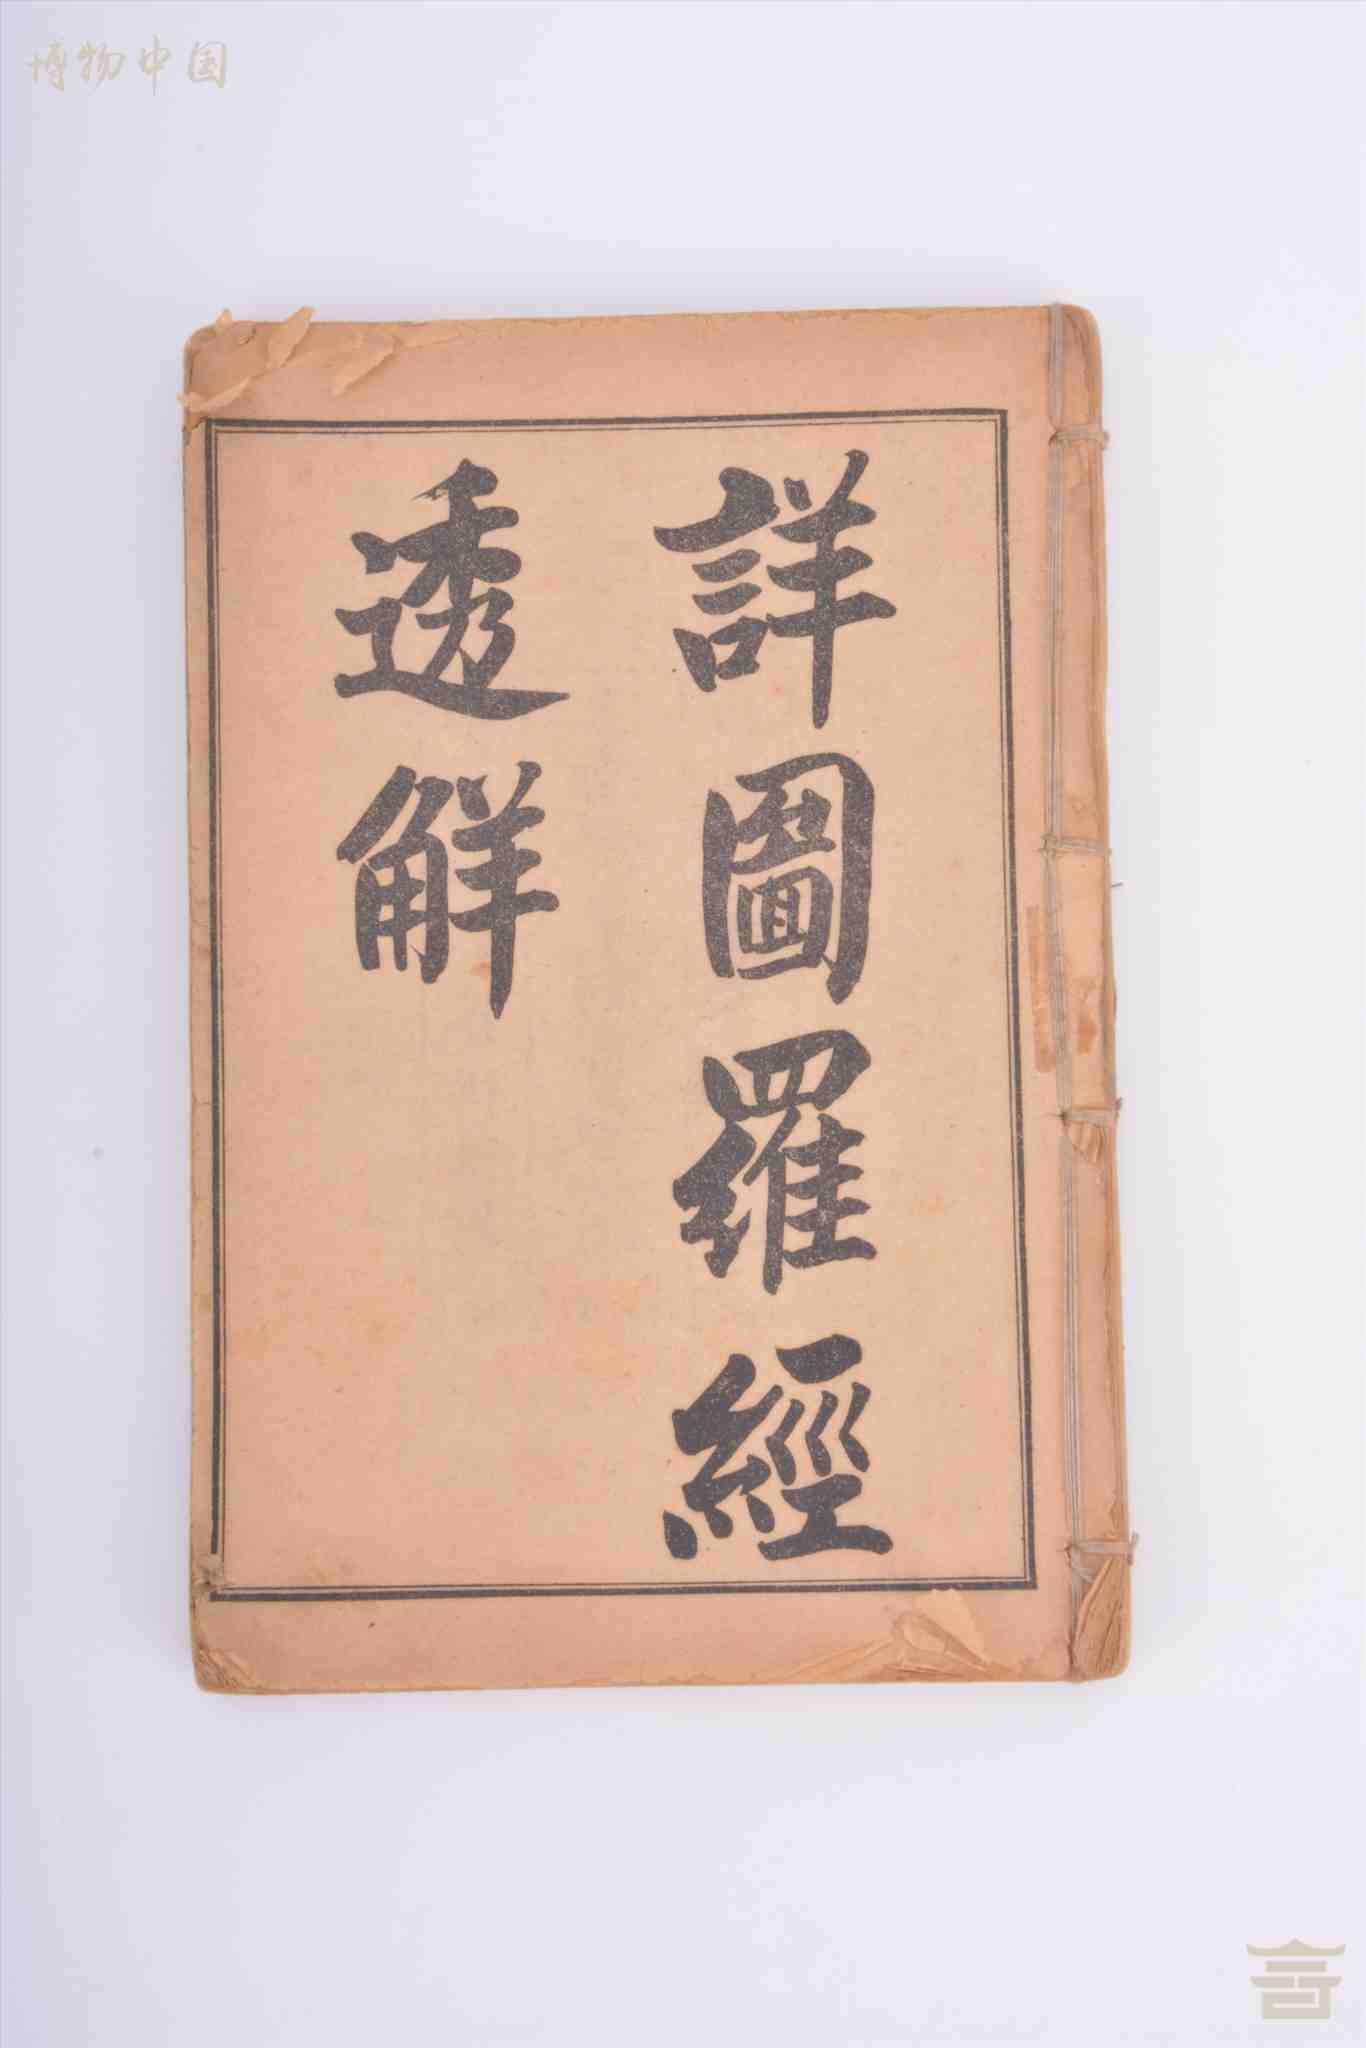 博物中国
詳圖羅經
透解